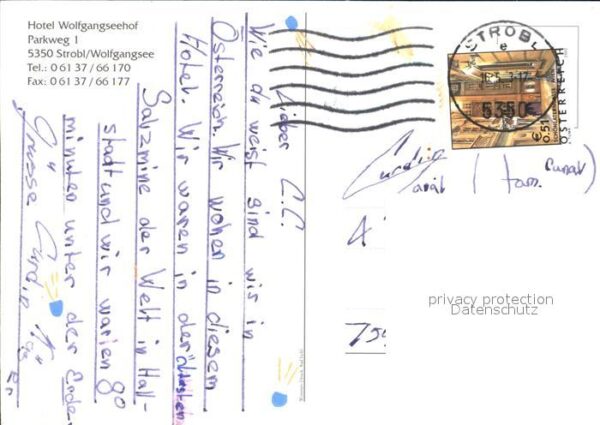 Hotel Wolfgangseehof
Parkweg 1
5350 Strobl/Wolfgangsee
Tel.: 0 61 37 / 66 170
Fax: 0 61 37 / 66 177
Lieber C.C.
Wie du weist sind wir in
Österreich. Wir wohen in diesem
Hotel. Wir waren in der ältesten
Salzmine der Welt in Hall-
stadt und wir warien 80
minuten unter der Erde.
Grüsse Curdin
STROBL
e
5350
ÖSTERREICH
€ 0,51
Curdin
(fam.
privacy protection
Datenschutz